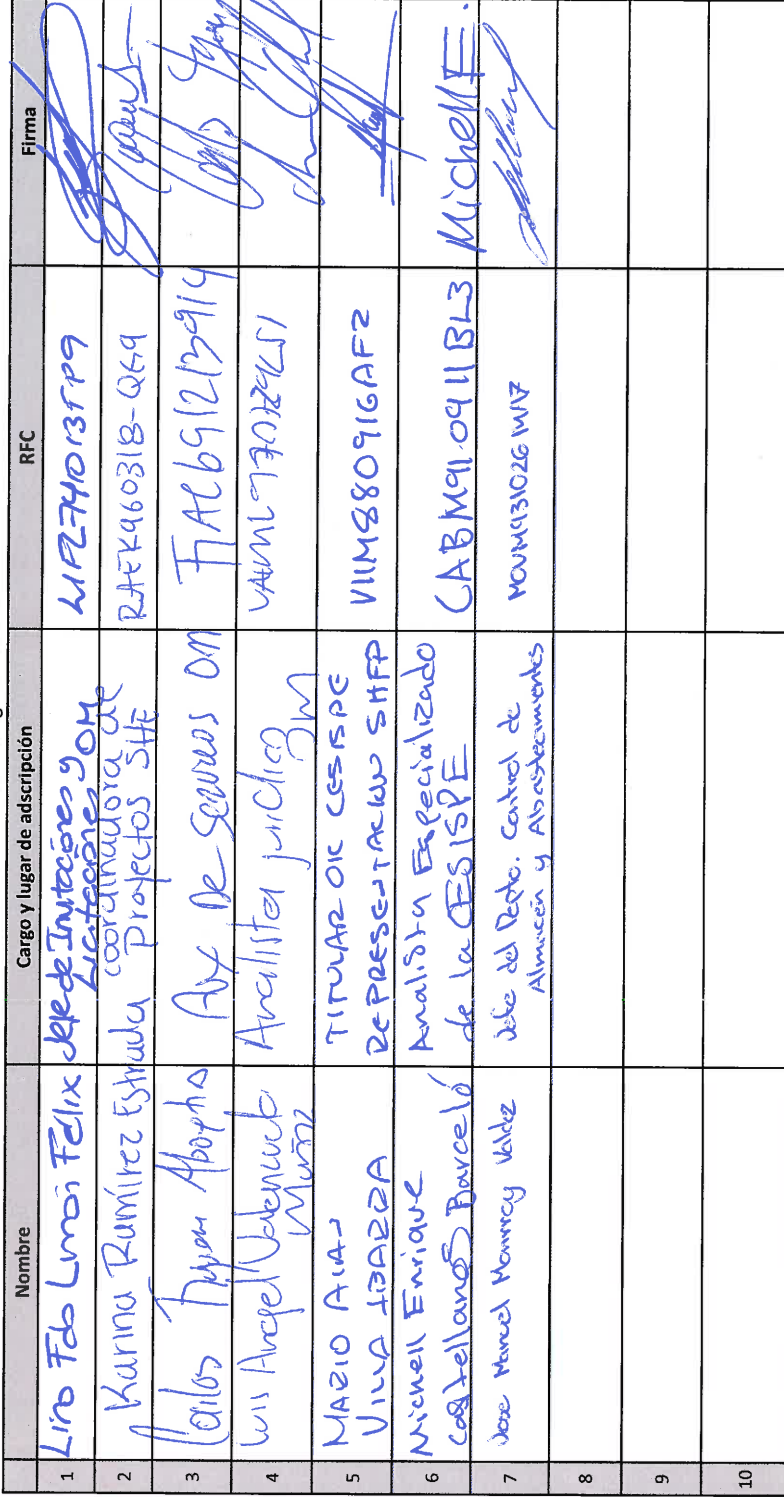 Nombre
Cargo y lugar de adscripción
RFC
Firma
1
Lino Fdo Limón Félix
Jefe de Invitaciones y
Licitaciones OM
2
Karina Ramírez Estrada
coordinadora de
Proyectos SHE
RAEK960318-QG9
3
Carlos
Aux De Servicios OM
4
Luis Angel Valenzuela
Muñoz
Analista jurídico
5
MARIO ALAN
VILLA IBARRA
TITULAR OIC CESISPE
REPRESENTACION SHFP
VIIM880916AF2
6
Michell Enrique
Castellanos Barceló
Analista Especializado
de la CESISPE
CABM910911BL3
MichellE.
7
Jose Manuel Monrroy Valdez
Jefe del Depto. Control de
Almacén y Abastecimientos
8
9
10